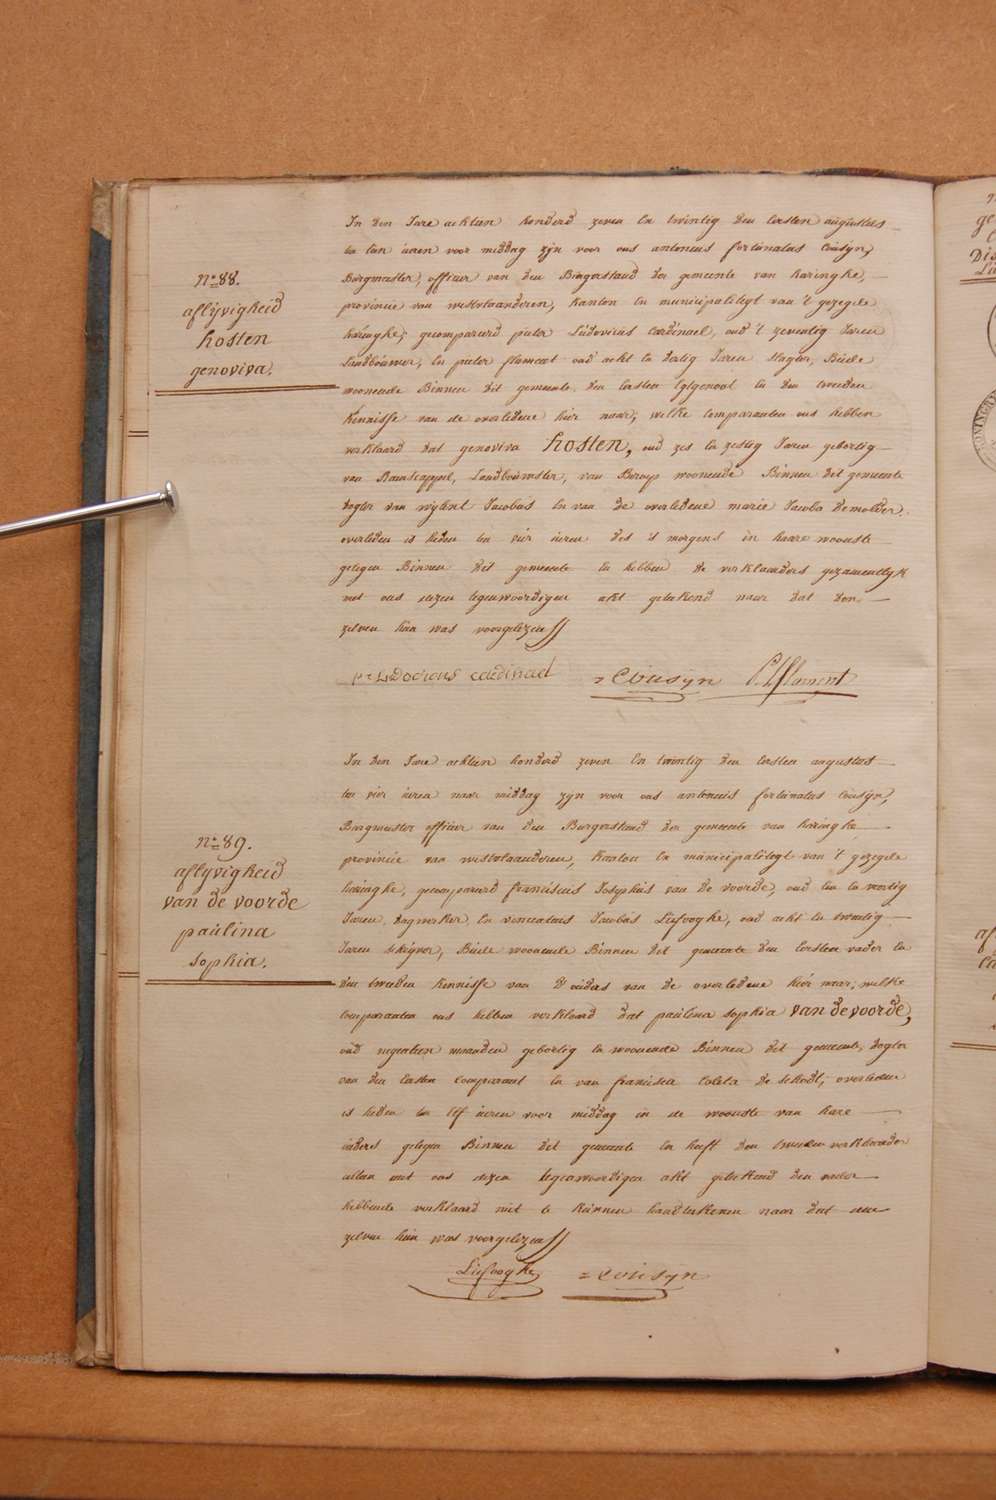 N° 88.
aflijvigheid
hosten
genoviva.
In den Jare achtien honderd zeven en twintig den eersten augustus
ten tien ueren voor middag zijn voor ons antonius fortunatus Cousijn,
Borgmeester, officier van den Burgerstand der gemeente van haringhe,
provincie van westvlaanderen, kanton en municipaliteyt van 't gezegde
haringhe, gecompareerd pieter Ludovicus Cardinael, oud 't zeventig Jaren
Landbouwer, en pieter flament oud acht en dertig Jaren slagter, Beede
woonende Binnen dit gemeente, den eersten en den tweeden
kennisse van de overledene hier naar; welke Comparanten ons hebben
verklaard dat genoviva hosten, oud zes en zestig Jaren geboortig
van Ramscappel, Landbouwster, van Beroep woonende Binnen dit gemeente
dogter van wijlent Jacobus en van de overledene marie Jacoba Demolder,
overleden is heden ten vier ueren des 's morgens in haare wooniste
gelegen Binnen dit gemeente en hebben de verklaarders gezamentlijk
met ons dezen tegenwoordigen akt geteekend naar dat den
zelven hun was voorgelezen //
Ludovicus cardinael = Cousyn P. flament
N° 89.
aflijvigheid
van de voorde
paulina
sophia.
In den Jare achtien honderd zeven en twintig den eersten augustus
ten vier ueren naar middag zijn voor ons antonius fortunatus Cousijn,
Borgmeester officier van den Burgerstand der gemeente van haringhe
provincie van westvlaanderen, kanton en municipaliteyt van 't gezegde
haringhe, gecompareerd franciscus Josephus van de voorde, oud een en veertig
Jaren, dagwerker, en vincentius Jacobus Liefooghe, oud acht en twintig
Jaren schijver, Beede woonende Binnen dit gemeente den eersten vader en
den tweeden kennisse van d'ouders van de overledene hier naar; welke
comparanten ons hebben verklaard dat paulina sophia van de voorde,
oud negentien maanden geboortig en woonende Binnen dit gemeente, dogter
van den Eersten comparant en van francisca Coleta de schodt, overleden
is heden ten elf ueren voor middag in de wooniste van hare
ouders gelegen Binnen dit gemeente en heeft den tweeden verklaarder
alleen met ons dezen tegenwoordigen akt geteekend den vader
hebbende verklaard niet te kunnen handteekenen naar dat den
zelven hun was voorgelezen //
Liefooghe = Cousyn